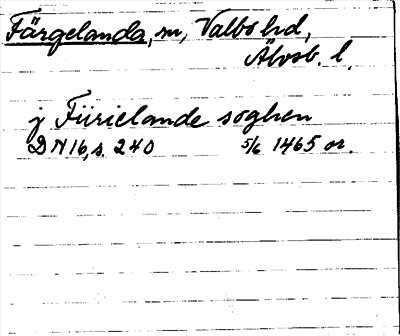 Färgelanda, sn, Valbo hd,
Älvsb. l.
j Fürielande soghen
DN 16, s. 240 5/6 1465 or.